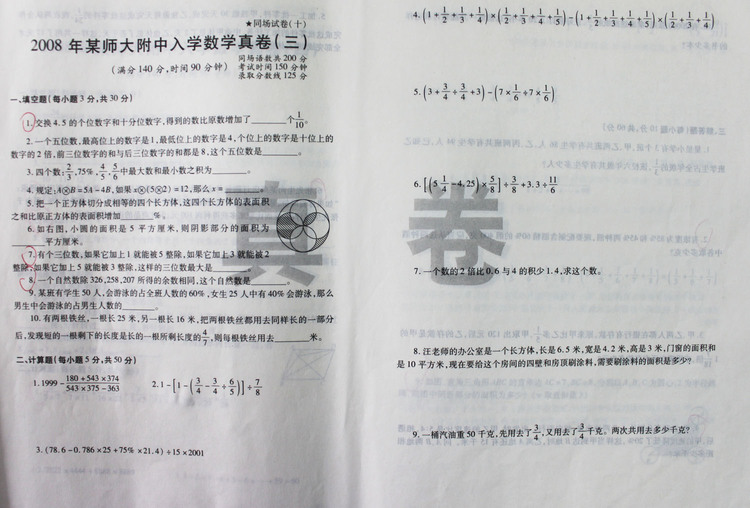 ★同场试卷(十)
2008 年某师大附中入学数学真卷(三)
(满分140分,时间90分钟)
同场语数共200分
考试时间150分钟
录取分数线125分
一、填空题(每小题3分,共30分)
1.交换4.5的个位数字和十分位数字,得到的数比原数增加了______个1/10。
2.一个五位数,最高位上的数字是1,最低位上的数字是4,个位上的数字是十位上的
数字的2倍,前三位数字的和与后三位数字的和都是8,这个五位数是______。
3.四个数:2/3,75%,4/5,5/6中最大数和最小数之积为______。
4.规定:A⊗B=5A-4B,如果x⊗(5⊗2)=12,那么x=______。
5.把一个正方体切分成相等的四个长方体,这四个长方体的表面积
之和比原正方体的表面积增加______%。
6.如右图,小圆的面积是5平方厘米,则阴影部分的面积为
______平方厘米。
7.有个三位数,如果它加上1就能被5整除,如果它加上3就能被2
整除,如果它加上5就能被3整除,这样的三位数最大是______。
8.一个自然数除326,258,207所得的余数相同,这个自然数是______。
9.某班有学生50人,会游泳的占全班人数的60%,女生25人中有40%会游泳,那么
男生中会游泳的占男生人数的______。
10.有两根铁丝,一根长25米,另一根长16米,把两根铁丝都用去同样长的一部分
后,发现短的一根剩下的长度是长的一根所剩长度的4/7,则每根铁丝用去______米。
二、计算题(每小题5分,共50分)
1. 1999 - (180+543×374)/(543×375-363)
2. 1-[1-(3/4-3/4÷6/5)]÷7/8
3. (78.6-0.786×25+75%×21.4)÷15×2001
4. (1+1/2+1/3+1/4)×(1/2+1/3+1/4+1/5)-(1+1/2+1/3+1/4+1/5)×(1/2+1/3+1/4)
5. (3+3/4÷3/4+3)-(7×1/6÷7×1/6)
6. [(5 1/4-4.25)×5/8]÷3/8+3.3÷11/6
7. 一个数的2倍比0.6与4的积少1.4,求这个数。
8. 汪老师的办公室是一个长方体,长是6.5米,宽是4.2米,高是3米,门窗的面积和
是10平方米,现在要给这个房间的四壁和房顶刷涂料,需要刷涂料的面积是多少?
9. 一桶汽油重50千克,先用去了3/4,又用去了3/4千克。两次共用去多少千克?
真卷